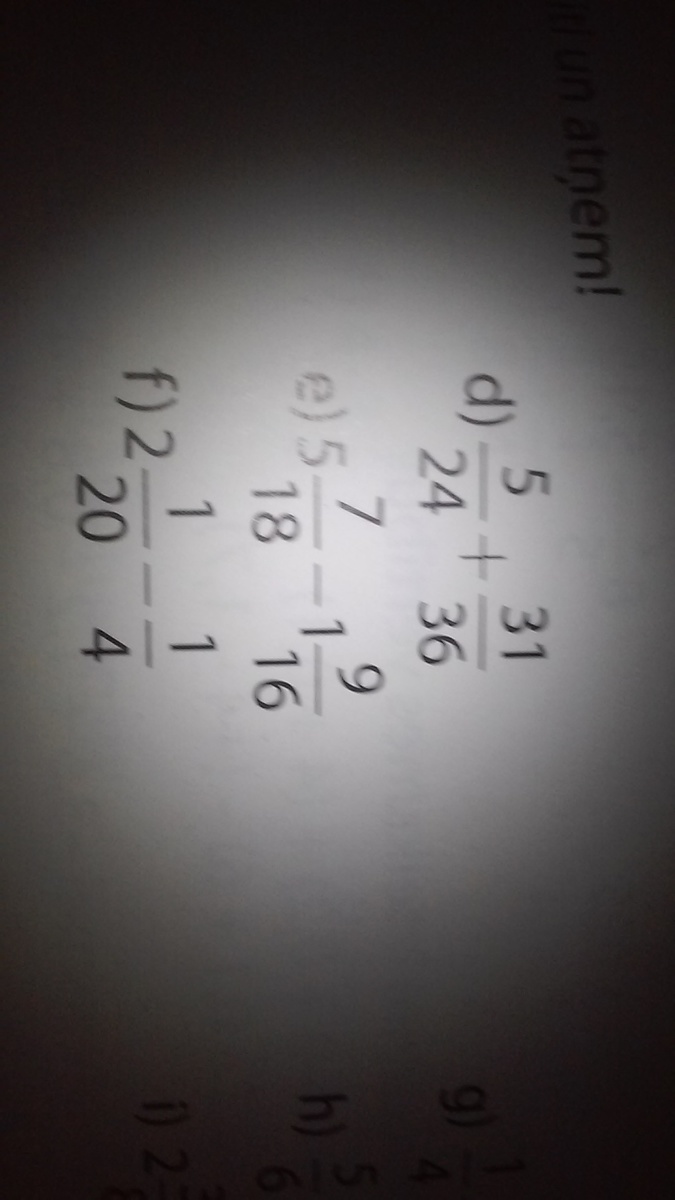 un atņem!
d) 5/24 + 31/36
e) 5 7/18 − 1 9/16
f) 2 1/20 − 1/4
g) 1/4
h) 5/6
i) 2